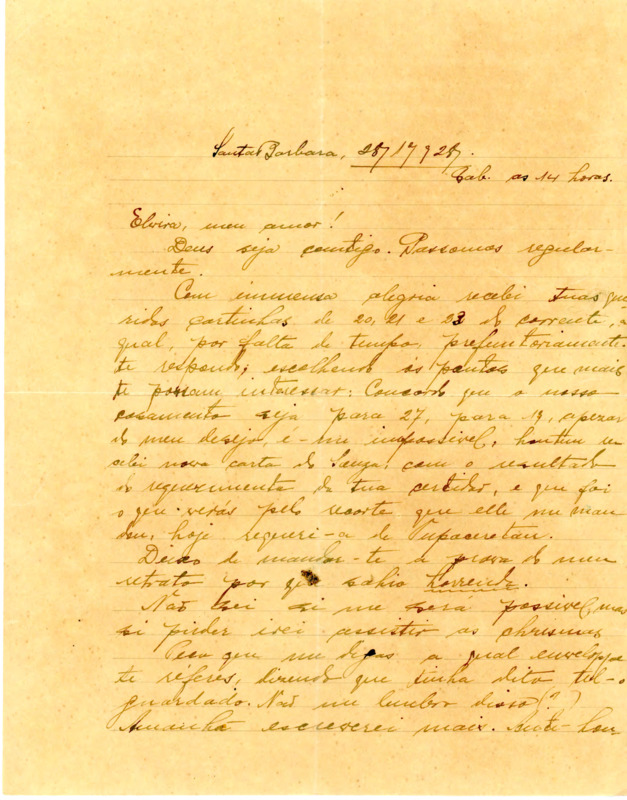 Santa Barbara, 28/1/928/.
Sab. as 14 horas.
Elvira, meu amor!
Deus seja comtigo. Passamos regular-
mente.
Com immensa alegria recebi tuas que
ridas cartinhas de 20, 21 e 23 do corrente, a
qual, por falta de tempo, peremtoriamente
te respondo, escolhendo os pontos que mais
te possam interessar. Concordo que o nosso
casamento seja para 27, para 13, apezar
do meu desejo, é-me impossivel; hontem re
cebi nova carta do Souza, com o resultado
do requerimento da tua certidão, e que foi
o que verás pelo recorte que elle me man
dou, hoje requeri-a de Tupaceretan.
Deixo de mandar-te a prova do meu
retrato por que sahio horrenda.
Não sei si me será possivel, mas
si puder irei assistir as chrismas
Peço que me digas a qual enveloppe
te referes, dizendo que tinha dito tel-o
guardado. Não me lembro disso (?)
Amanhã escreverei mais. Ante-hon